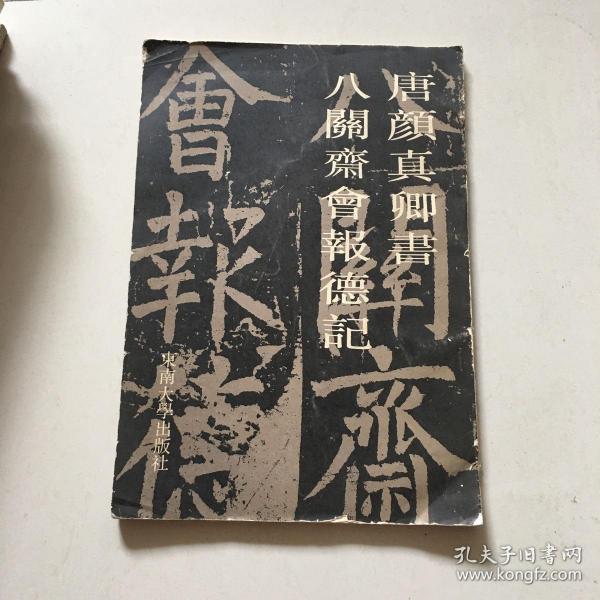 唐顏真卿書
八關齋會報德記
八關齋
會報德
東南大學出版社
孔夫子旧书网
www.kongfz.com